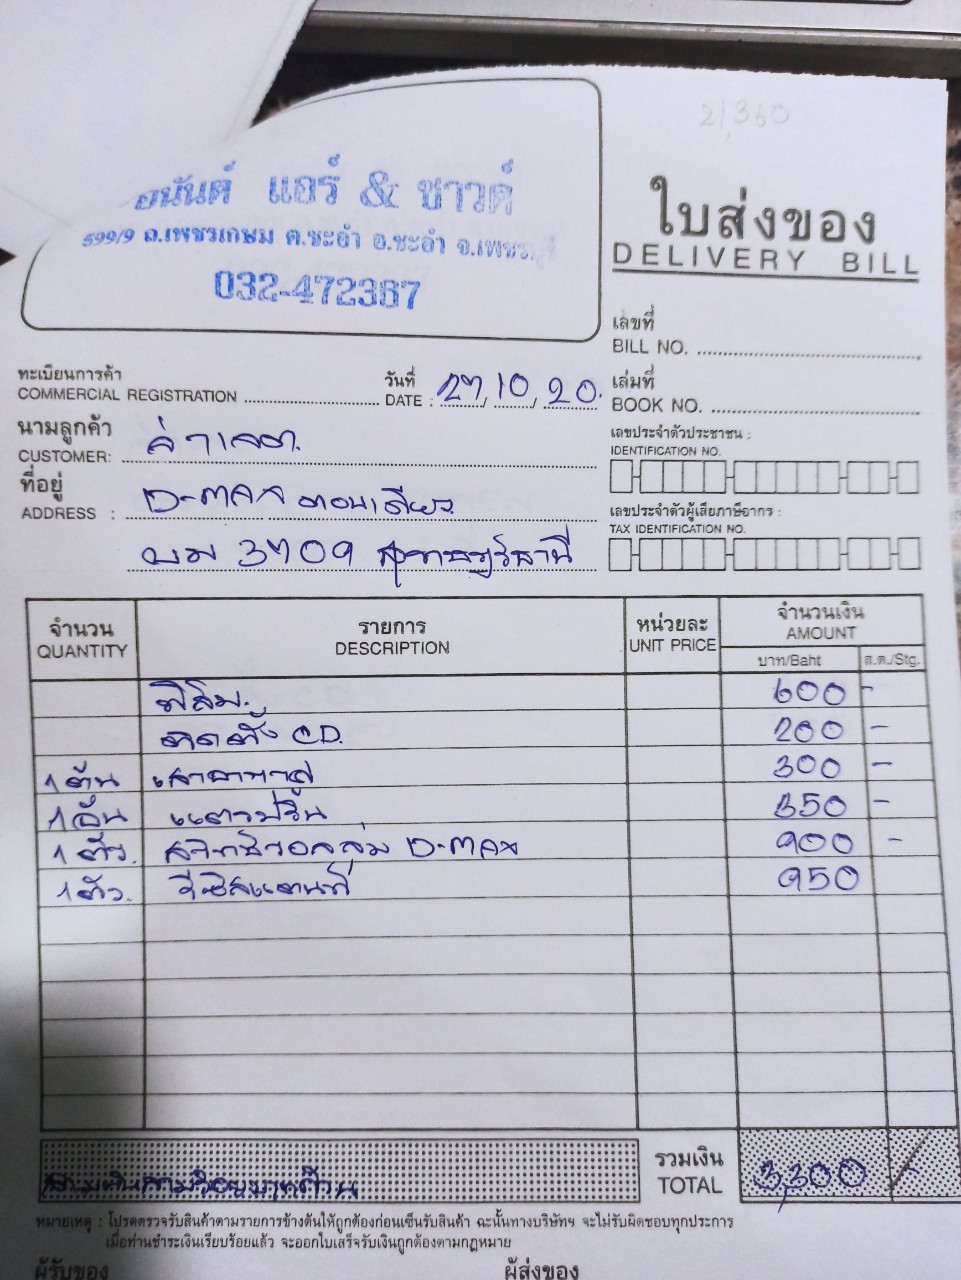 21,360
อนันต์ แอร์ & ซาวด์
599/9 ถ.เพชรเกษม ต.ชะอำ อ.ชะอำ จ.เพชรบุรี
032-472367
ใบส่งของ
DELIVERY BILL
เลขที่
BILL NO.
ทะเบียนการค้า
COMMERCIAL REGISTRATION
วันที่
DATE : 27/10/20
เล่มที่
BOOK NO.
นามลูกค้า
CUSTOMER:
เลขประจำตัวประชาชน :
IDENTIFICATION NO.
ที่อยู่
ADDRESS : D-MAX ตอนเดียว
บม 3709 สุราษฎร์ธานี
เลขประจำตัวผู้เสียภาษีอากร :
TAX IDENTIFICATION NO.
จำนวน รายการ หน่วยละ จำนวนเงิน
QUANTITY DESCRIPTION UNIT PRICE AMOUNT
บาท/Baht ส.ต./Stg.
ฟิล์ม 600 -
ติดตั้ง CD. 200 -
1 ต้น เสาอากาศ 300 -
1 อัน 350 -
1 ตัว. D-MAX 900 -
1 ตัว. รีซิสแตนท์ 950
สามพันสามร้อยบาทถ้วน
รวมเงิน
TOTAL 3,300 -
หมายเหตุ : โปรดตรวจรับสินค้าตามรายการข้างต้นให้ถูกต้องก่อนเซ็นรับสินค้า ฉะนั้นทางบริษัทฯ จะไม่รับผิดชอบทุกประการ
เมื่อท่านชำระเงินเรียบร้อยแล้ว จะออกใบเสร็จรับเงินถูกต้องตามกฎหมาย
ผู้รับของ ผู้ส่งของ